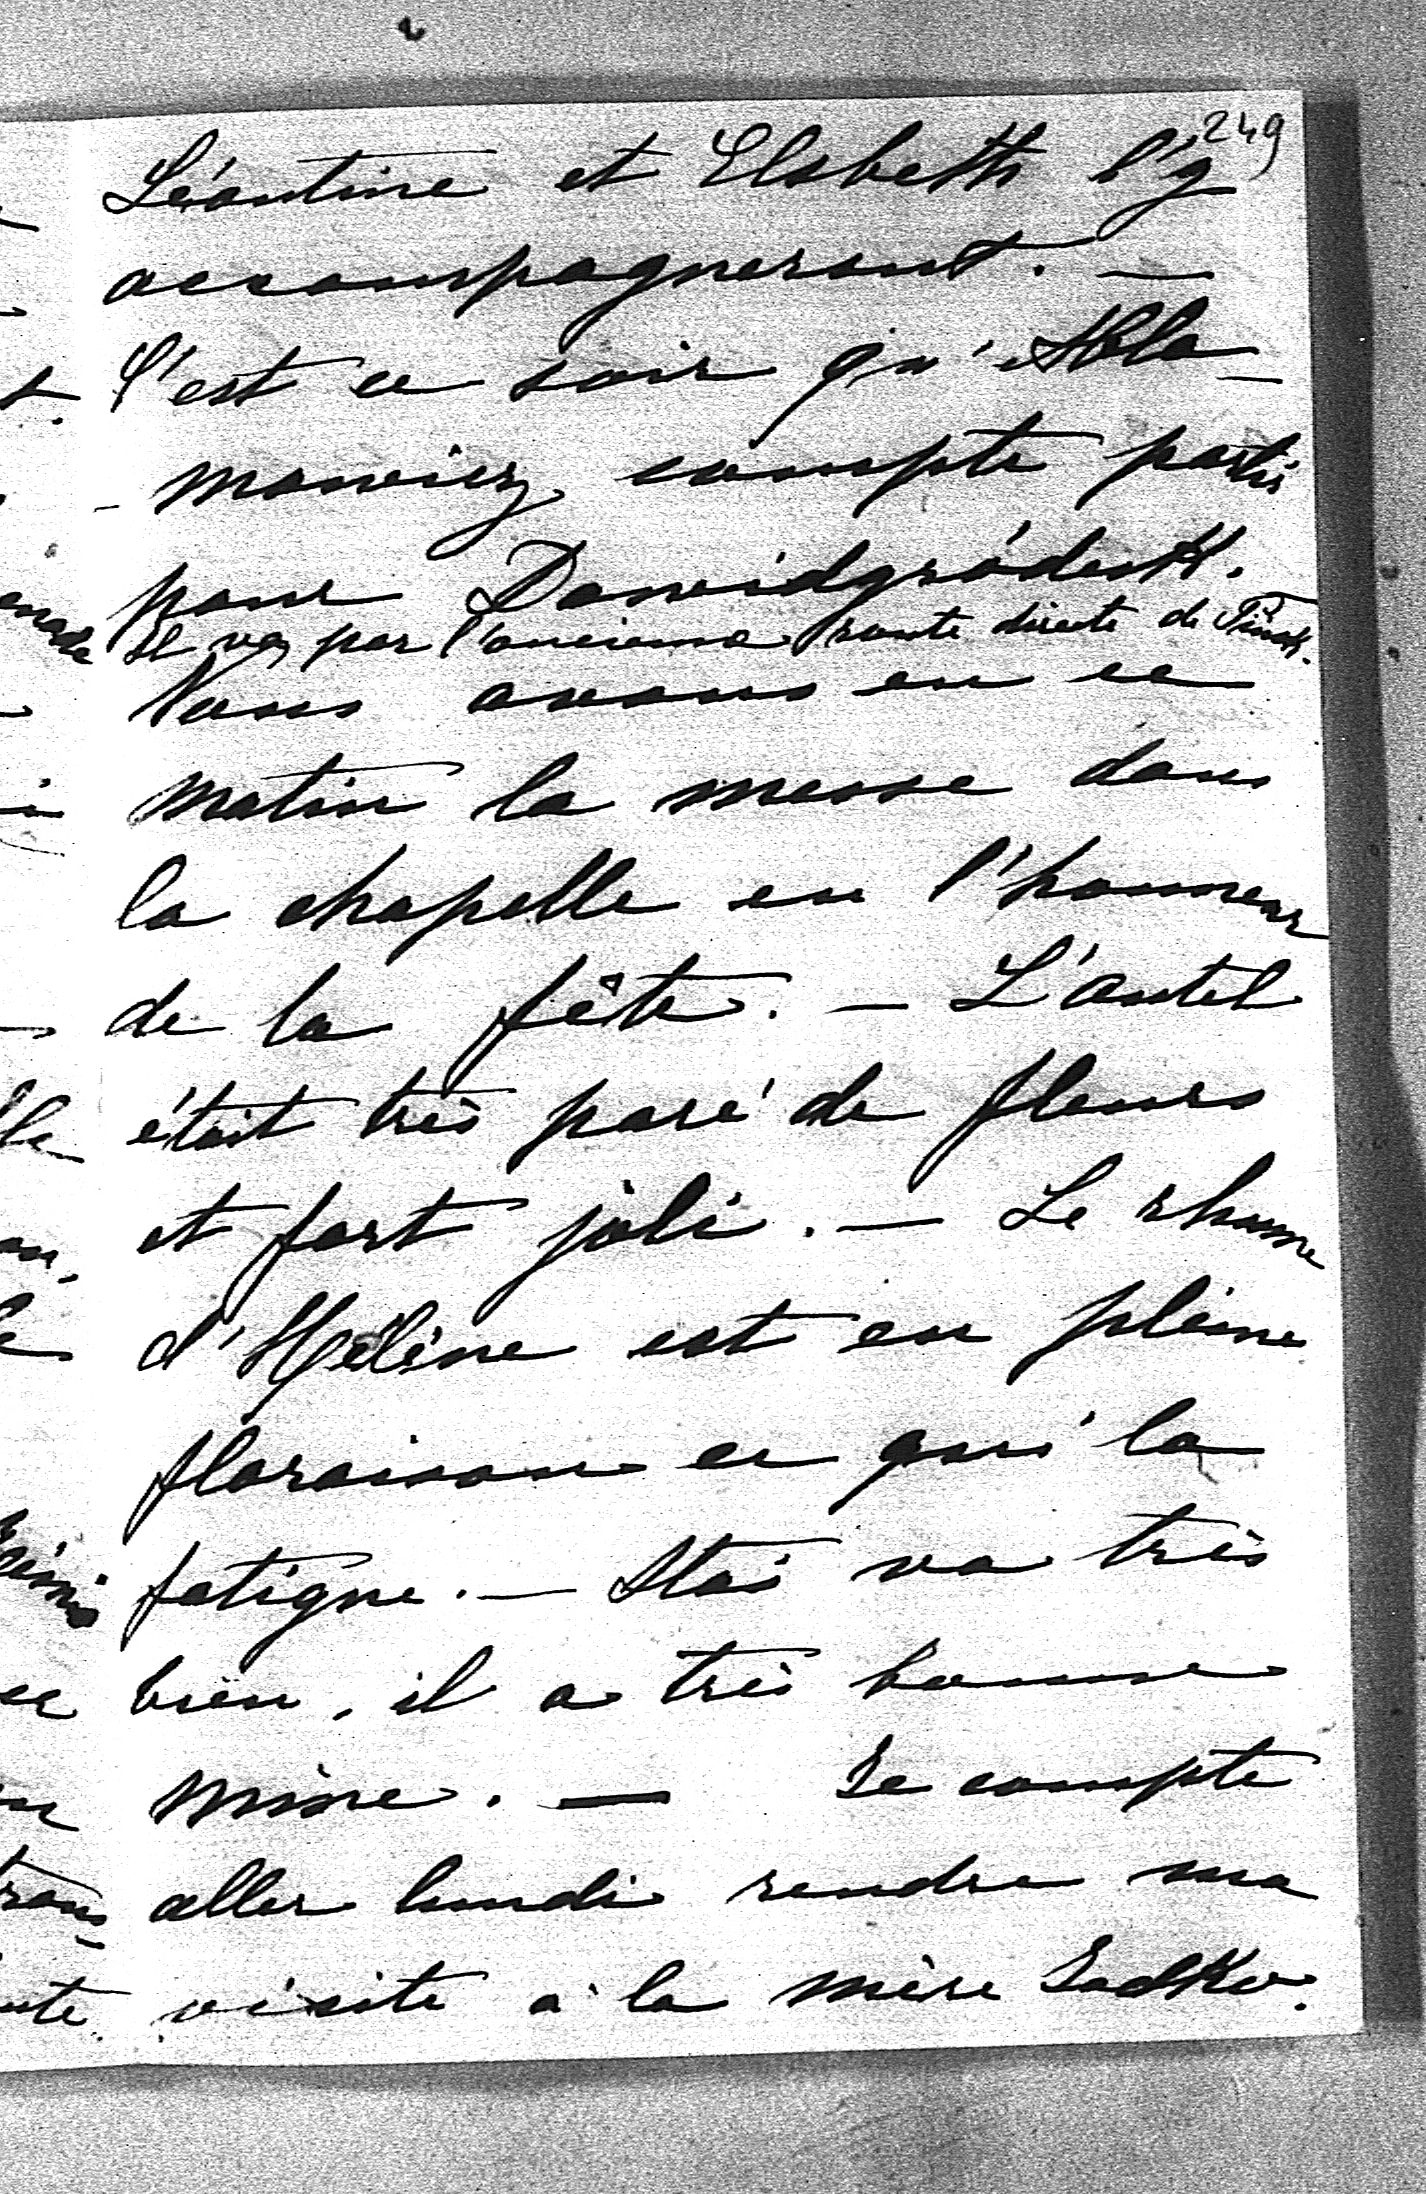 249
Léontine et Elsbeth l'y
accompagneront. —
C'est ce soir qu'Abla-
- mowicz compte partir
pour Dawidgródek.
Il va par l'ancienne route directe de Pinsk.
Nous avons eu ce
matin la messe dans
la chapelle en l'honneur
de la fête. — L'autel
était très paré de fleurs
et fort joli. — Le rhume
d'Hélène est en pleine
floraison ce qui la
fatigue. — Stas va très
bien, il a très bonne
mine. — Je compte
aller lundi rendre ma
visite à la mère